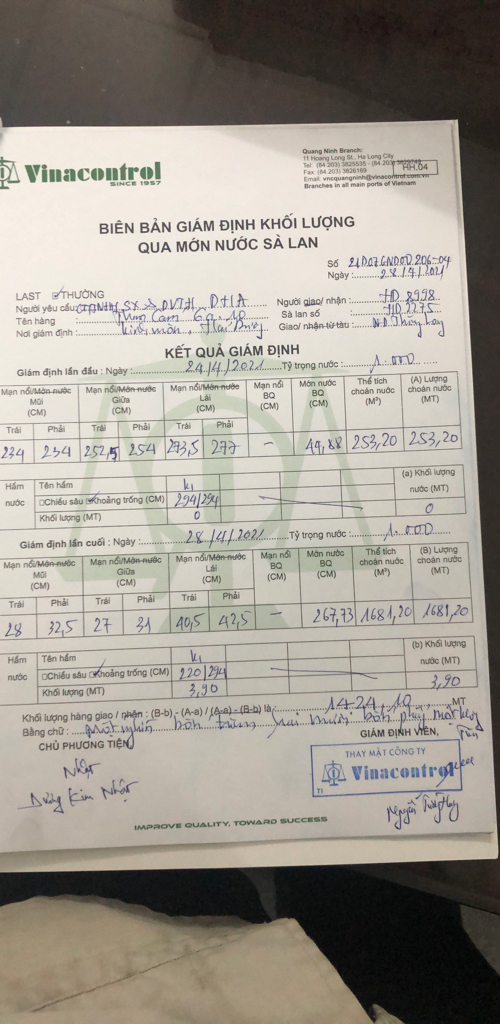 Vinacontrol
SINCE 1957
Quang Ninh Branch:
11 Hoang Long St., Ha Long City
Tel: (84.203) 3825535 - (84.203)
Fax: (84.203) 3826169
HH.04
Email: vncquangninh@vinacontrol.com.vn
Branches in all main ports of Vietnam
BIÊN BẢN GIÁM ĐỊNH KHỐI LƯỢNG
QUA MỚN NƯỚC SÀ LAN
Số
Ngày: 28/4/2021
LAST THƯỜNG
Người yêu cầu: SX DVTH
Người giao/ nhận: HD 8998
Tên hàng
Sà lan số: HD 2275
Nơi giám định: Kinh môn, Hải Dương
Giao/ nhận từ tàu
KẾT QUẢ GIÁM ĐỊNH
Giám định lần đầu: Ngày: 24/4/2021 Tỷ trọng nước: 1.000
Mạn nổi/Món nước Mũi (CM) Mạn nổi/Món nước Giữa (CM) Mạn nổi/Món nước Lái (CM) Mạn nổi BQ (CM) Món nước BQ (CM) Thể tích choán nước (M³) (A) Lượng choán nước (MT)
Trái Phải Trái Phải Trái Phải
234 234 252,5 254 273,5 277 - 44,88 253,20 253,20
Hầm nước Tên hầm K1 (a) Khối lượng nước (MT)
Chiều sâu Khoảng trống (CM) 294/294
Khối lượng (MT) 0 0
Giám định lần cuối: Ngày: 28/4/2021 Tỷ trọng nước: 1.000
Mạn nổi/Món nước Mũi (CM) Mạn nổi/Món nước Giữa (CM) Mạn nổi/Món nước Lái (CM) Mạn nổi BQ (CM) Món nước BQ (CM) Thể tích choán nước (M³) (B) Lượng choán nước (MT)
Trái Phải Trái Phải Trái Phải
28 32,5 27 31 40,5 42,5 - 267,73 1681,20 1681,20
Hầm nước Tên hầm K1 (b) Khối lượng nước (MT)
Chiều sâu Khoảng trống (CM) 220/294
Khối lượng (MT) 3,90 3,90
Khối lượng hàng giao / nhận: (B-b) - (A-a) / (A-a) - (B-b) là: 1424,10 MT
Bằng chữ: Một nghìn bốn trăm hai mươi bốn phẩy một không Tấn
CHỦ PHƯƠNG TIỆN
GIÁM ĐỊNH VIÊN,
THAY MẶT CÔNG TY
Vinacontrol
Nhật
Dương Kim Nhật
IMPROVE QUALITY, TOWARD SUCCESS